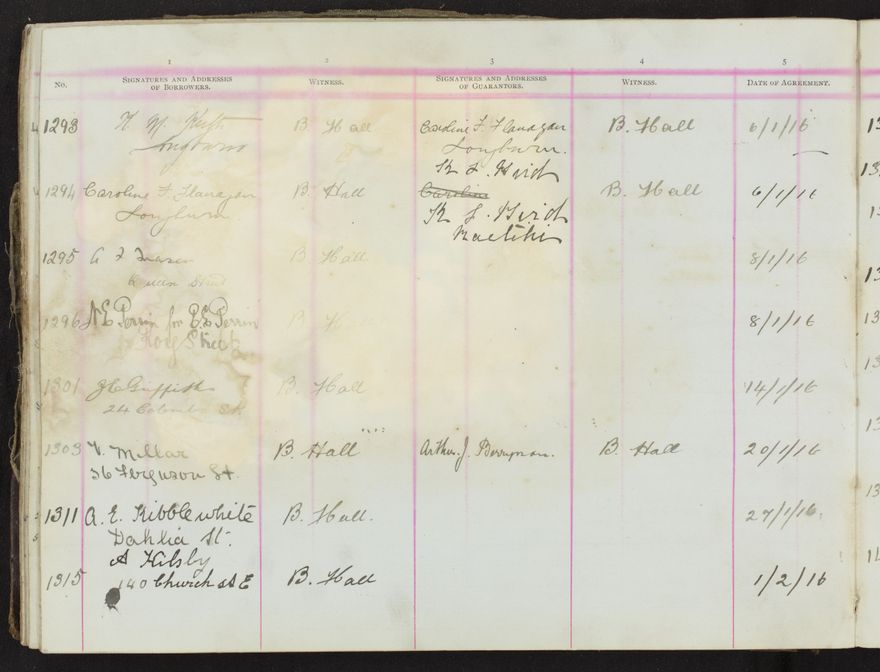 1 2 3 4 5
No. Signatures and Addresses of Borrowers. Witness. Signatures and Addresses of Guarantors. Witness. Date of Agreement.
1293 B. Hall Caroline F. Flanagan B. Hall 6/1/16
Longburn Longburn.
1294 Caroline F. Flanagan B. Hall Caroline B. Hall 6/1/16
Longburn
1295 B. Hall 8/1/16
Queen Street
1296 N E Perrin for E. E Perrin B. Hall 8/1/16
Street
1301 Griffiths B. Hall 14/1/16
24 Colombo St.
1303 V. Millar B. Hall Arthur. J. Berryman. B. Hall 20/1/16
36 Ferguson St.
1311 A. E. Kibblewhite B. Hall. 27/1/16.
Dahlia St.
A Hilsby
1315 140 Church St E B. Hall 1/2/16